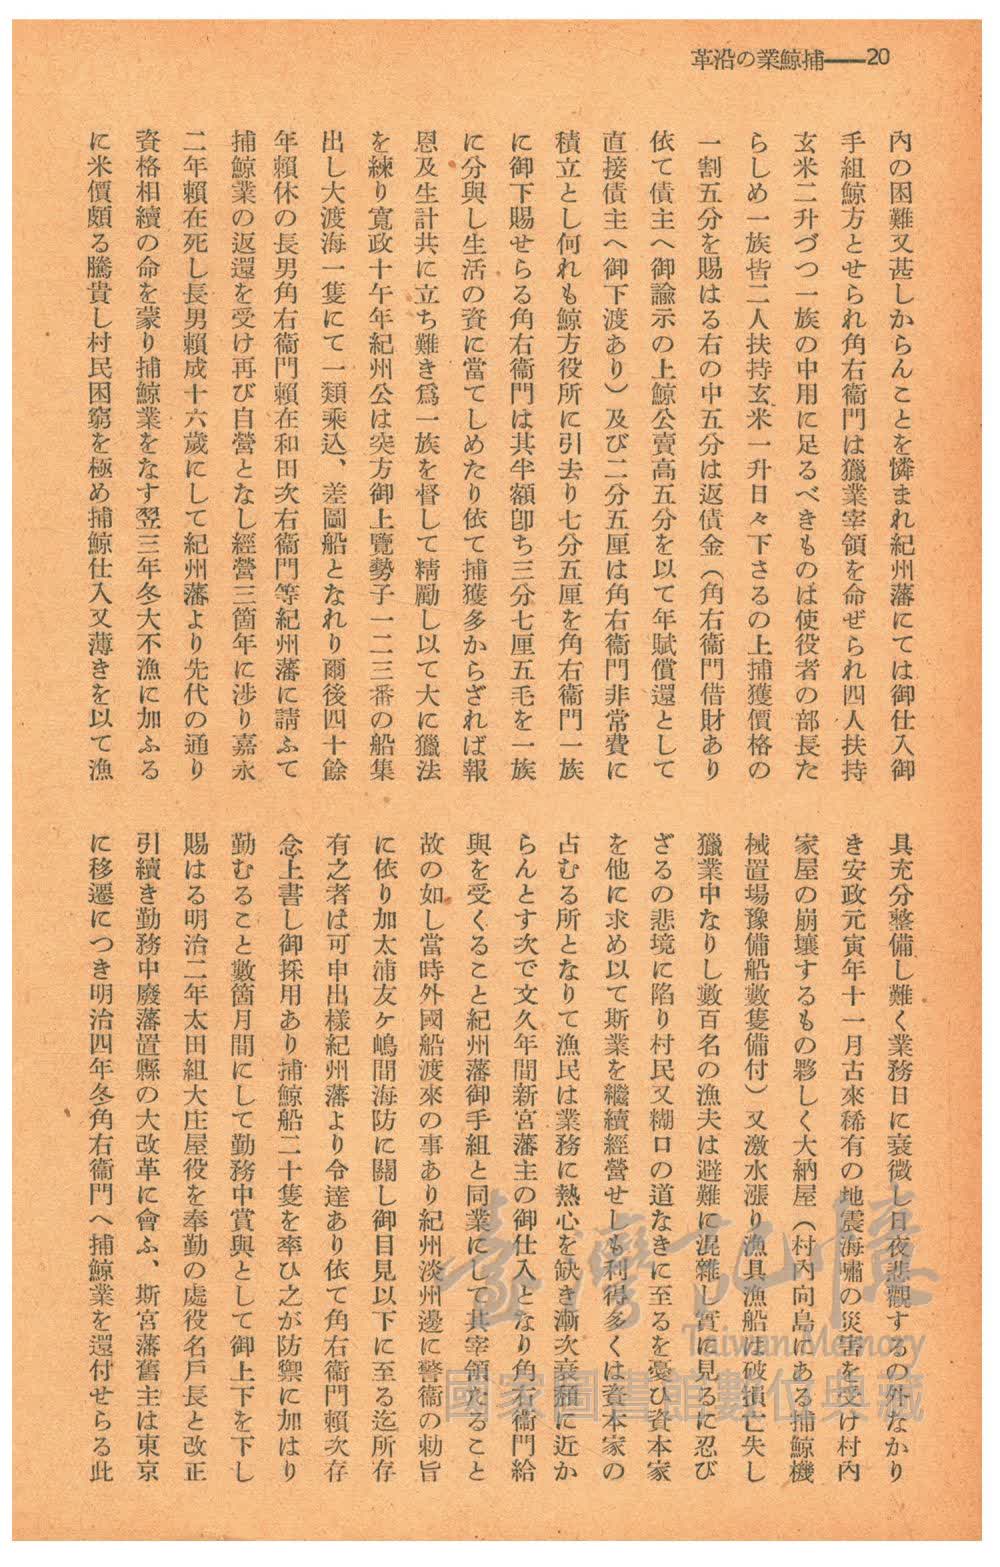 20——捕鯨業の沿革
內の困難又甚しからんことを憐まれ紀州藩にては御仕入御
手組鯨方とせられ角右衞門は獵業宰領を命ぜられ四人扶持
玄米二升づつ一族の中用に足るべきものは使役者の部長た
らしめ一族皆二人扶持玄米一升日々下さるの上捕獲價格の
一割五分を賜はる右の中五分は返債金（角右衞門借財あり
依て債主へ御諭示の上鯨公賣高五分を以て年賦償還として
直接債主へ御下渡あり）及び二分五厘は角右衞門非常費に
積立とし何れも鯨方役所に引去り七分五厘を角右衞門一族
に御下賜せらる角右衞門は其半額卽ち三分七厘五毛を一族
に分與し生活の資に當てしめたり依て捕獲多からざれば報
恩及生計共に立ち難き爲一族を督して精勵し以て大に獵法
を練り寬政十午年紀州公は突方御上覽勢子一二三番の船集
出し大渡海一隻にて一類乘込、差圖船となれり爾後四十餘
年賴休の長男角右衞門賴在和田次右衞門等紀州藩に請ふて
捕鯨業の返還を受け再び自營となし經營三箇年に涉り嘉永
二年賴在死し長男賴成十六歲にして紀州藩より先代の通り
資格相續の命を蒙り捕鯨業をなす翌三年冬大不漁に加ふる
に米價頗る騰貴し村民困窮を極め捕鯨仕入又薄きを以て漁
具充分整備し難く業務日に衰微し日夜悲觀するの外なかり
き安政元寅年十一月古來稀有の地震海嘯の災害を受け村內
家屋の崩壞するもの夥しく大納屋（村內向島にある捕鯨機
械置場豫備船數隻備付）又激水漲り漁具漁船は破損亡失し
獵業中なりし數百名の漁夫は避難に混雜し實に見るに忍び
ざるの悲境に陷り村民又糊口の道なきに至るを憂ひ資本家
を他に求め以て斯業を繼續經營せしも利得多くは資本家の
占むる所となりて漁民は業務に熱心を缺き漸次衰頽に近か
らんとす次で文久年間新宮藩主の御仕入となり角右衞門給
與を受くること紀州藩御手組と同業にして其宰領たること
故の如し當時外國船渡來の事あり紀州淡州邊に警衞の勅旨
に依り加太浦友ヶ嶋間海防に關し御目見以下に至る迄所存
有之者は可申出樣紀州藩より令達あり依て角右衞門賴次存
念上書し御採用あり捕鯨船二十隻を率ひ之が防禦に加はり
勤むること數箇月間にして勤務中賞與として御上下を下し
賜はる明治二年太田組大庄屋役を奉勤の處役名戶長と改正
引續き勤務中廢藩置縣の大改革に會ふ、斯宮藩舊主は東京
に移遷につき明治四年冬角右衞門へ捕鯨業を還付せらる此
臺灣記憶
Taiwan Memory
國家圖書館數位典藏